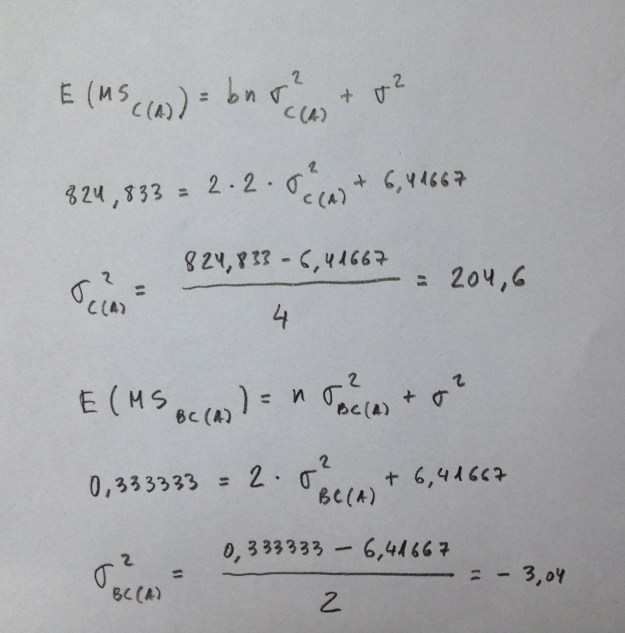 E (MS_C(A)) = bn σ²_C(A) + σ²
824,833 = 2 · 2 · σ²_C(A) + 6,41667
σ²_C(A) = (824,833 - 6,41667) / 4 = 204,6
E (MS_BC(A)) = n σ²_BC(A) + σ²
0,333333 = 2 · σ²_BC(A) + 6,41667
σ²_BC(A) = (0,333333 - 6,41667) / 2 = - 3,04